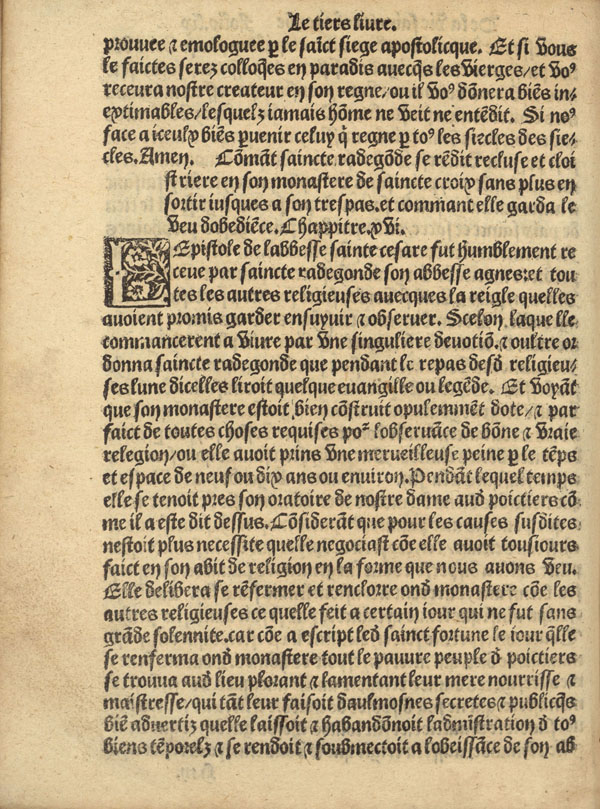 Le tiers liure.
prouuee ⁊ emologuee ꝑ le sai̅ct siege apostolicque. Et si vous
le faictes serez colloq̅es en paradis auecq̅s les vierges/et voꝰ
receura nostre createur en son regne/ou il voꝰ do̅nera bie̅s in-
extimables/lesquelz iamais ho̅me ne veit ne ente̅dit. Si noꝰ
face a iceulx bie̅s ꝑuenir celuy q̅ regne ꝑ toꝰ les siecles des sie-
cles. Amen. Co̅ma̅t saincte radego̅de se re̅dit recluse et cloi
striere en son monastere de saincte croix sans plus en
sortir iusques a son trespas. et commant elle garda le
veu dobedie̅ce. Chappitre. xvi.
LEpistole de labbesse sainte cesare fut humblement re
ceue par saincte radegonde son abbesse agnes: et tou
tes les autres religieuses auecques la reigle quelles
auoient promis garder ensuyuir ⁊ obseruer. Scelon laquelle
commancerent a viure par vne singuliere deuotio̅. ⁊ oultre or
donna saincte radegonde que pendant le repas desd̅ religieu-
ses lune dicelles liroit quelque euangille ou lege̅de. Et voya̅t
que son monastere estoit bien co̅struit opuleme̅t dote/⁊ par
faict de toutes choses requises poᷣ lobserua̅ce de bo̅ne ⁊ vraie
relegion/ou elle auoit prins vne merueilleuse peine ꝑ le te̅ps
et espace de neuf ou dix ans ou enuiron. Penda̅t lequel temps
elle se tenoit pres son oratoire de nostre dame aud̅ poictiers co̅
me il a este dit dessus. Co̅sidera̅t que pour les causes susdites
nestoit plus necessite quelle negociast co̅e elle auoit tousiours
faict en son abit de religion en la forme que nous auons veu.
Elle delibera se re̅fermer et renclorre ond̅ monastere co̅e les
autres religieuses ce quelle feit a certain iour qui ne fut sans
gra̅de solennite. car co̅e a escript led̅ sainct fortune le iour q̅lle
se renferma ond̅ monastere tout le pauure peuple d̅ poictiers
se trouua aud̅ lieu plorant ⁊ lamentant leur mere nourrisse ⁊
maistresse/qui ta̅t leur faisoit daulmosnes secretes ⁊ publicq̅s
bie̅ aduertiz quelle laissoit ⁊ haba̅do̅noit ladmi̅stration d̅ toꝰ
biens te̅porelz ⁊ se rendoit ⁊ soubmectoit a lobeissa̅ce de son ab